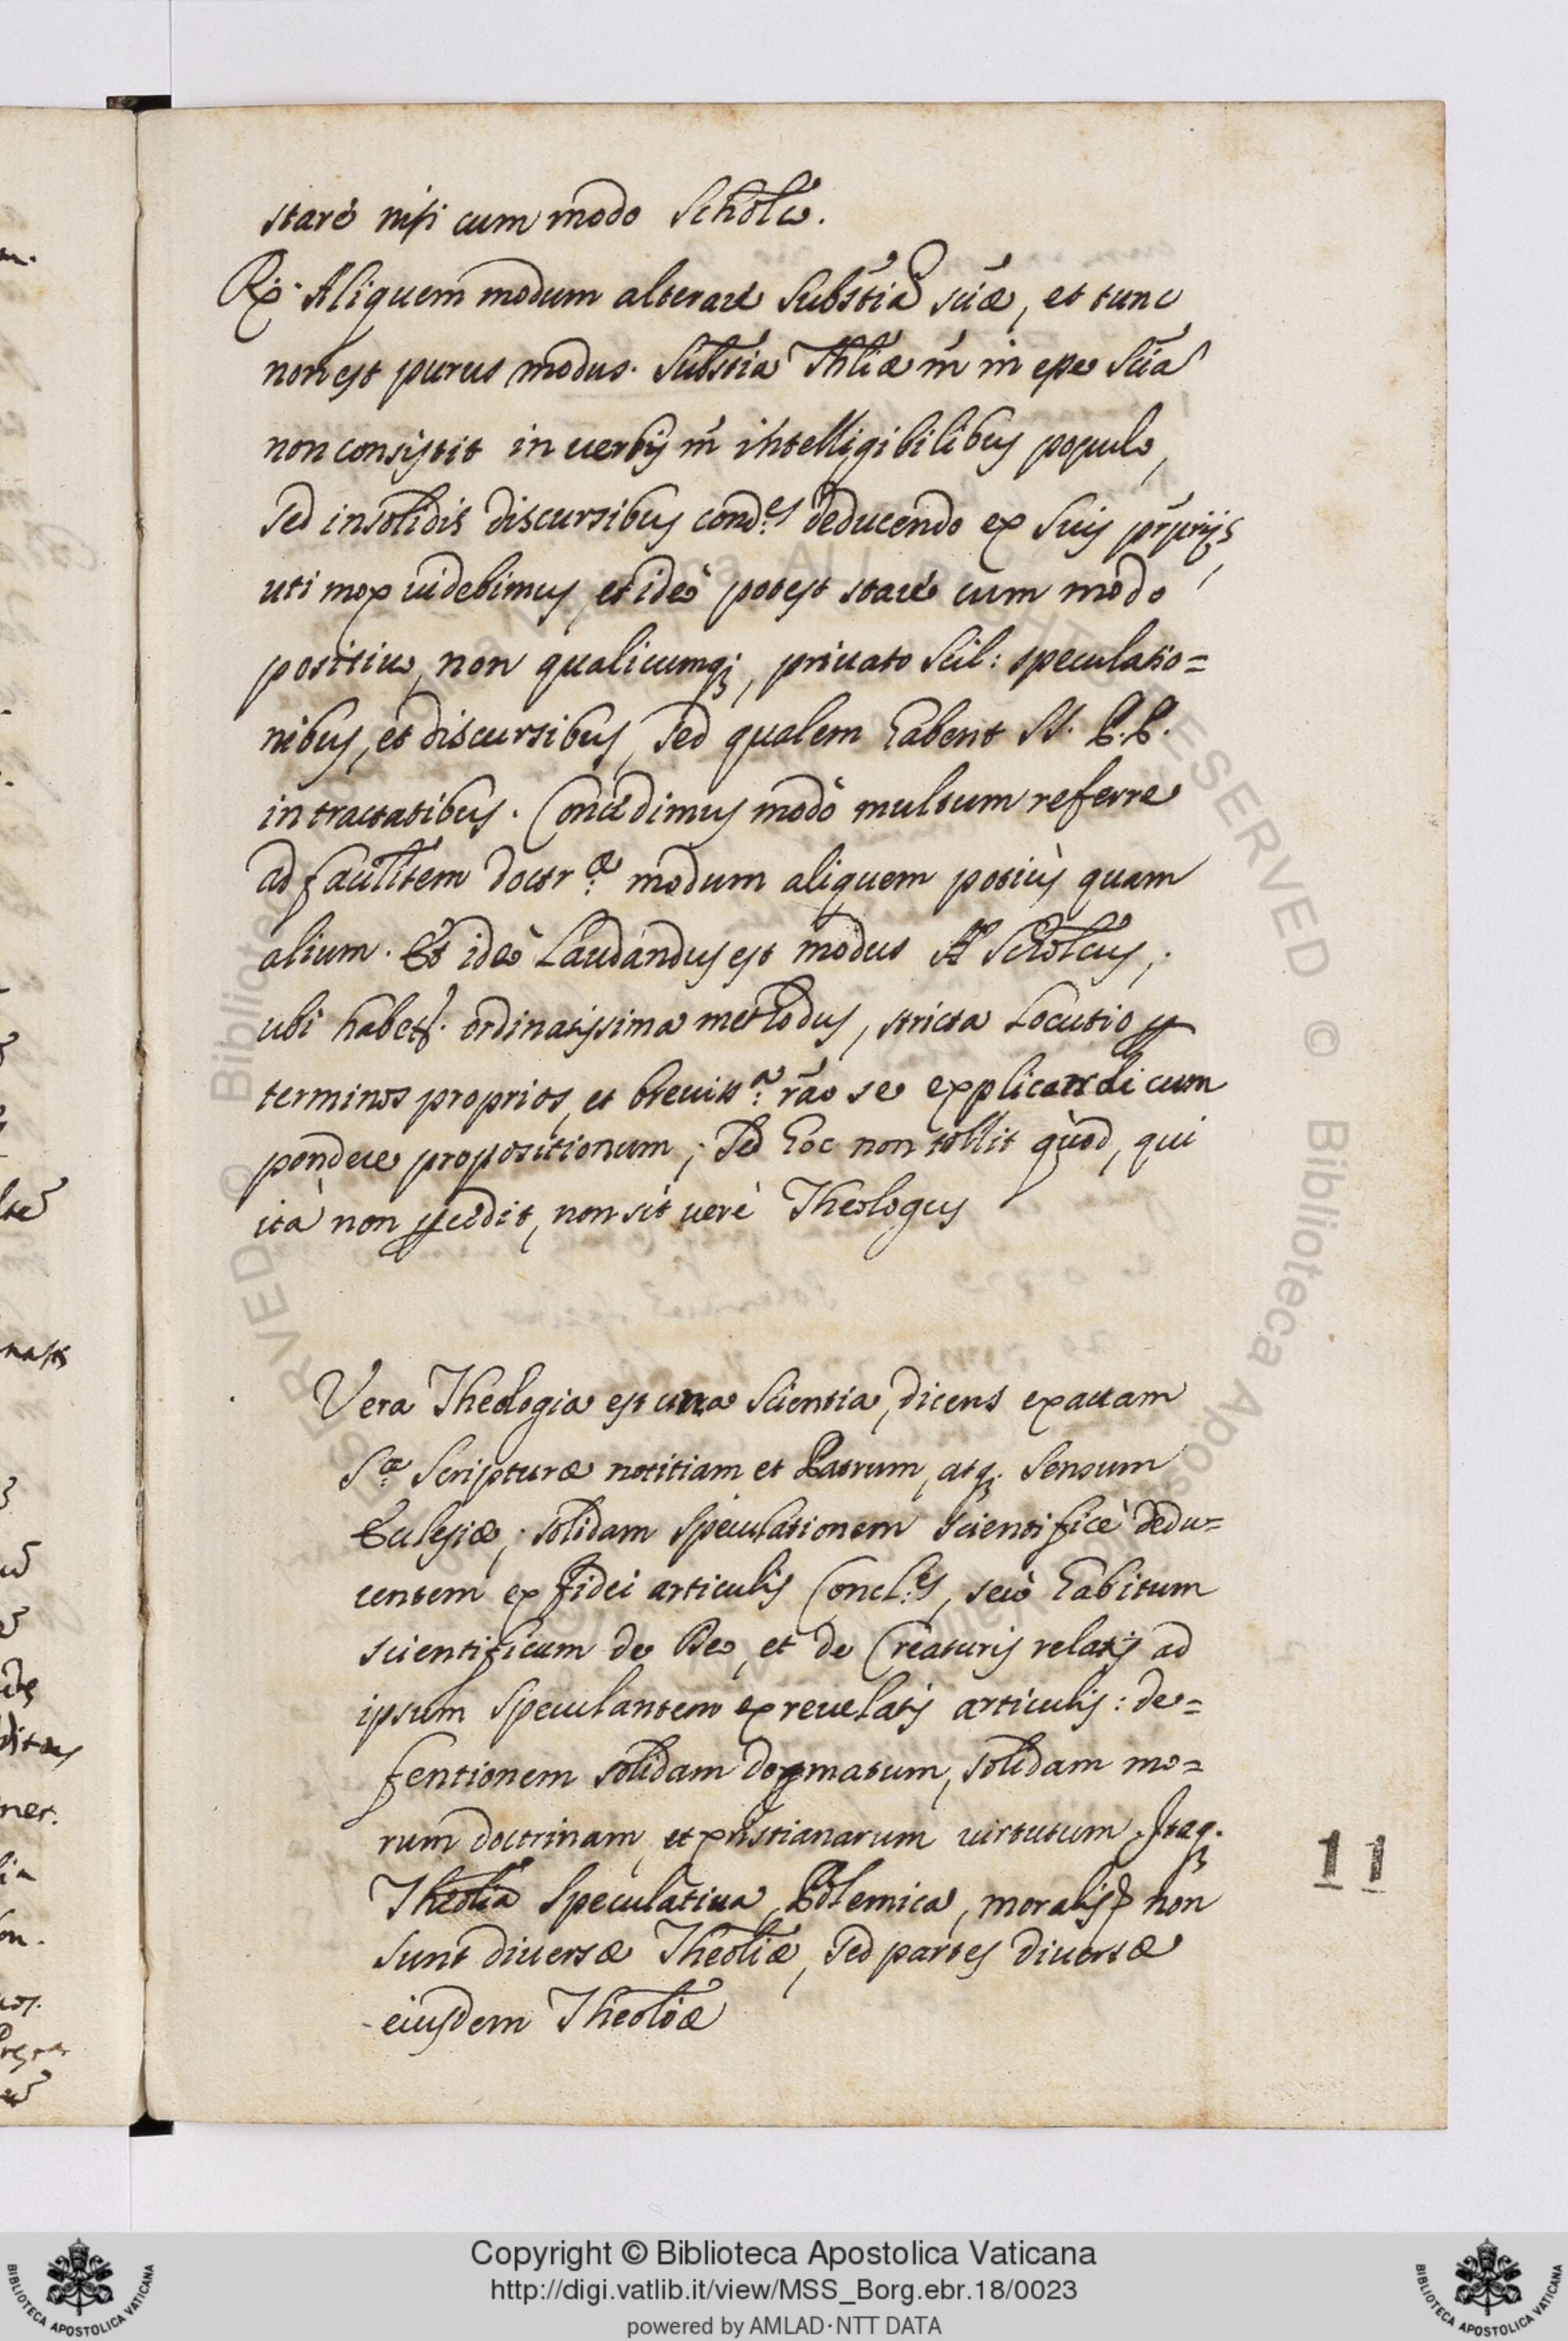 stare nisi cum modo Schōlco.
Rx. Aliquem modum alterare substīa scīæ, et tunc
non est purus modus. Substīa Thlīæ m̄ in esse scīa
non consistit in uerbis m̄ intelligibilibus populo,
sed in solidis discursibus cond:es deducendo ex suis prprijs
uti mox uidebimus, et ideò potest stare cum modo
positiuo, non qualicumq;, priuato Scil: speculatio=
nibus, et discursibus, sed qualem habent SS. P.P.
in tractatibus. Concedimus modò multum referre
ad facultītem doctr:æ modum aliquem potiùs quam
alium. Et ideò Laudandus est modus Schōlcus,
ubi habet. ordinatissima methodus, stricta Locutio
terminos proprios, et breuiss:a rāo se explicandi cum
pondere propositionum; sed hoc non tollit quod, qui
ità non procedit, non sit uerè Theologus
Vera Theologia est una Scientia, dicens exactam
S:æ Scripturæ notitiam et Patrum, atq; sensum
Eclesiæ; solidam speculationem scientificè dedu=
centem ex fidei articulis Concl:es, seù habitum
scientificum de Deo, et de Creaturis relatis ad
ipsum speculantem ex reuelatis articulis: de=
fentionem solidam dogmatum, solidam mo=
rum doctrinam, et xpistianarum uirtutum. Itaq;
Theolīa speculatiua, Polemica, moralis non
sunt diuersæ Theolīæ, sed partes diuersæ
eiusdem Theolīæ
11
© Biblioteca Apostolica Vaticana ALL RIGHTS RESERVED
Copyright © Biblioteca Apostolica Vaticana
http://digi.vatlib.it/view/MSS_Borg.ebr.18/0023
powered by AMLAD·NTT DATA
BIBLIOTECA APOSTOLICA VATICANA
BIBLIOTECA APOSTOLICA VATICANA